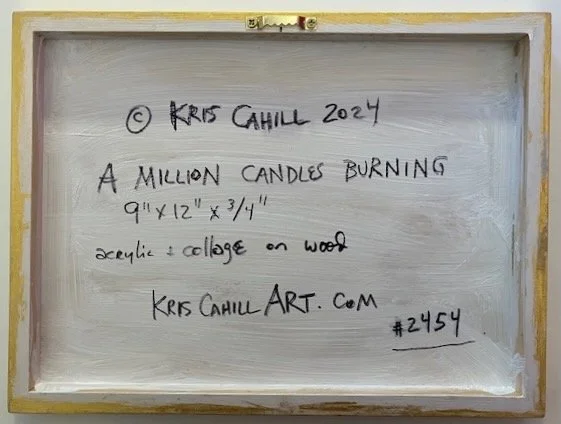 © KRIS CAHILL 2024
A MILLION CANDLES BURNING
9" x 12" x 3/4"
acrylic + collage on wood
KRIS CAHILL ART. COM
#2454